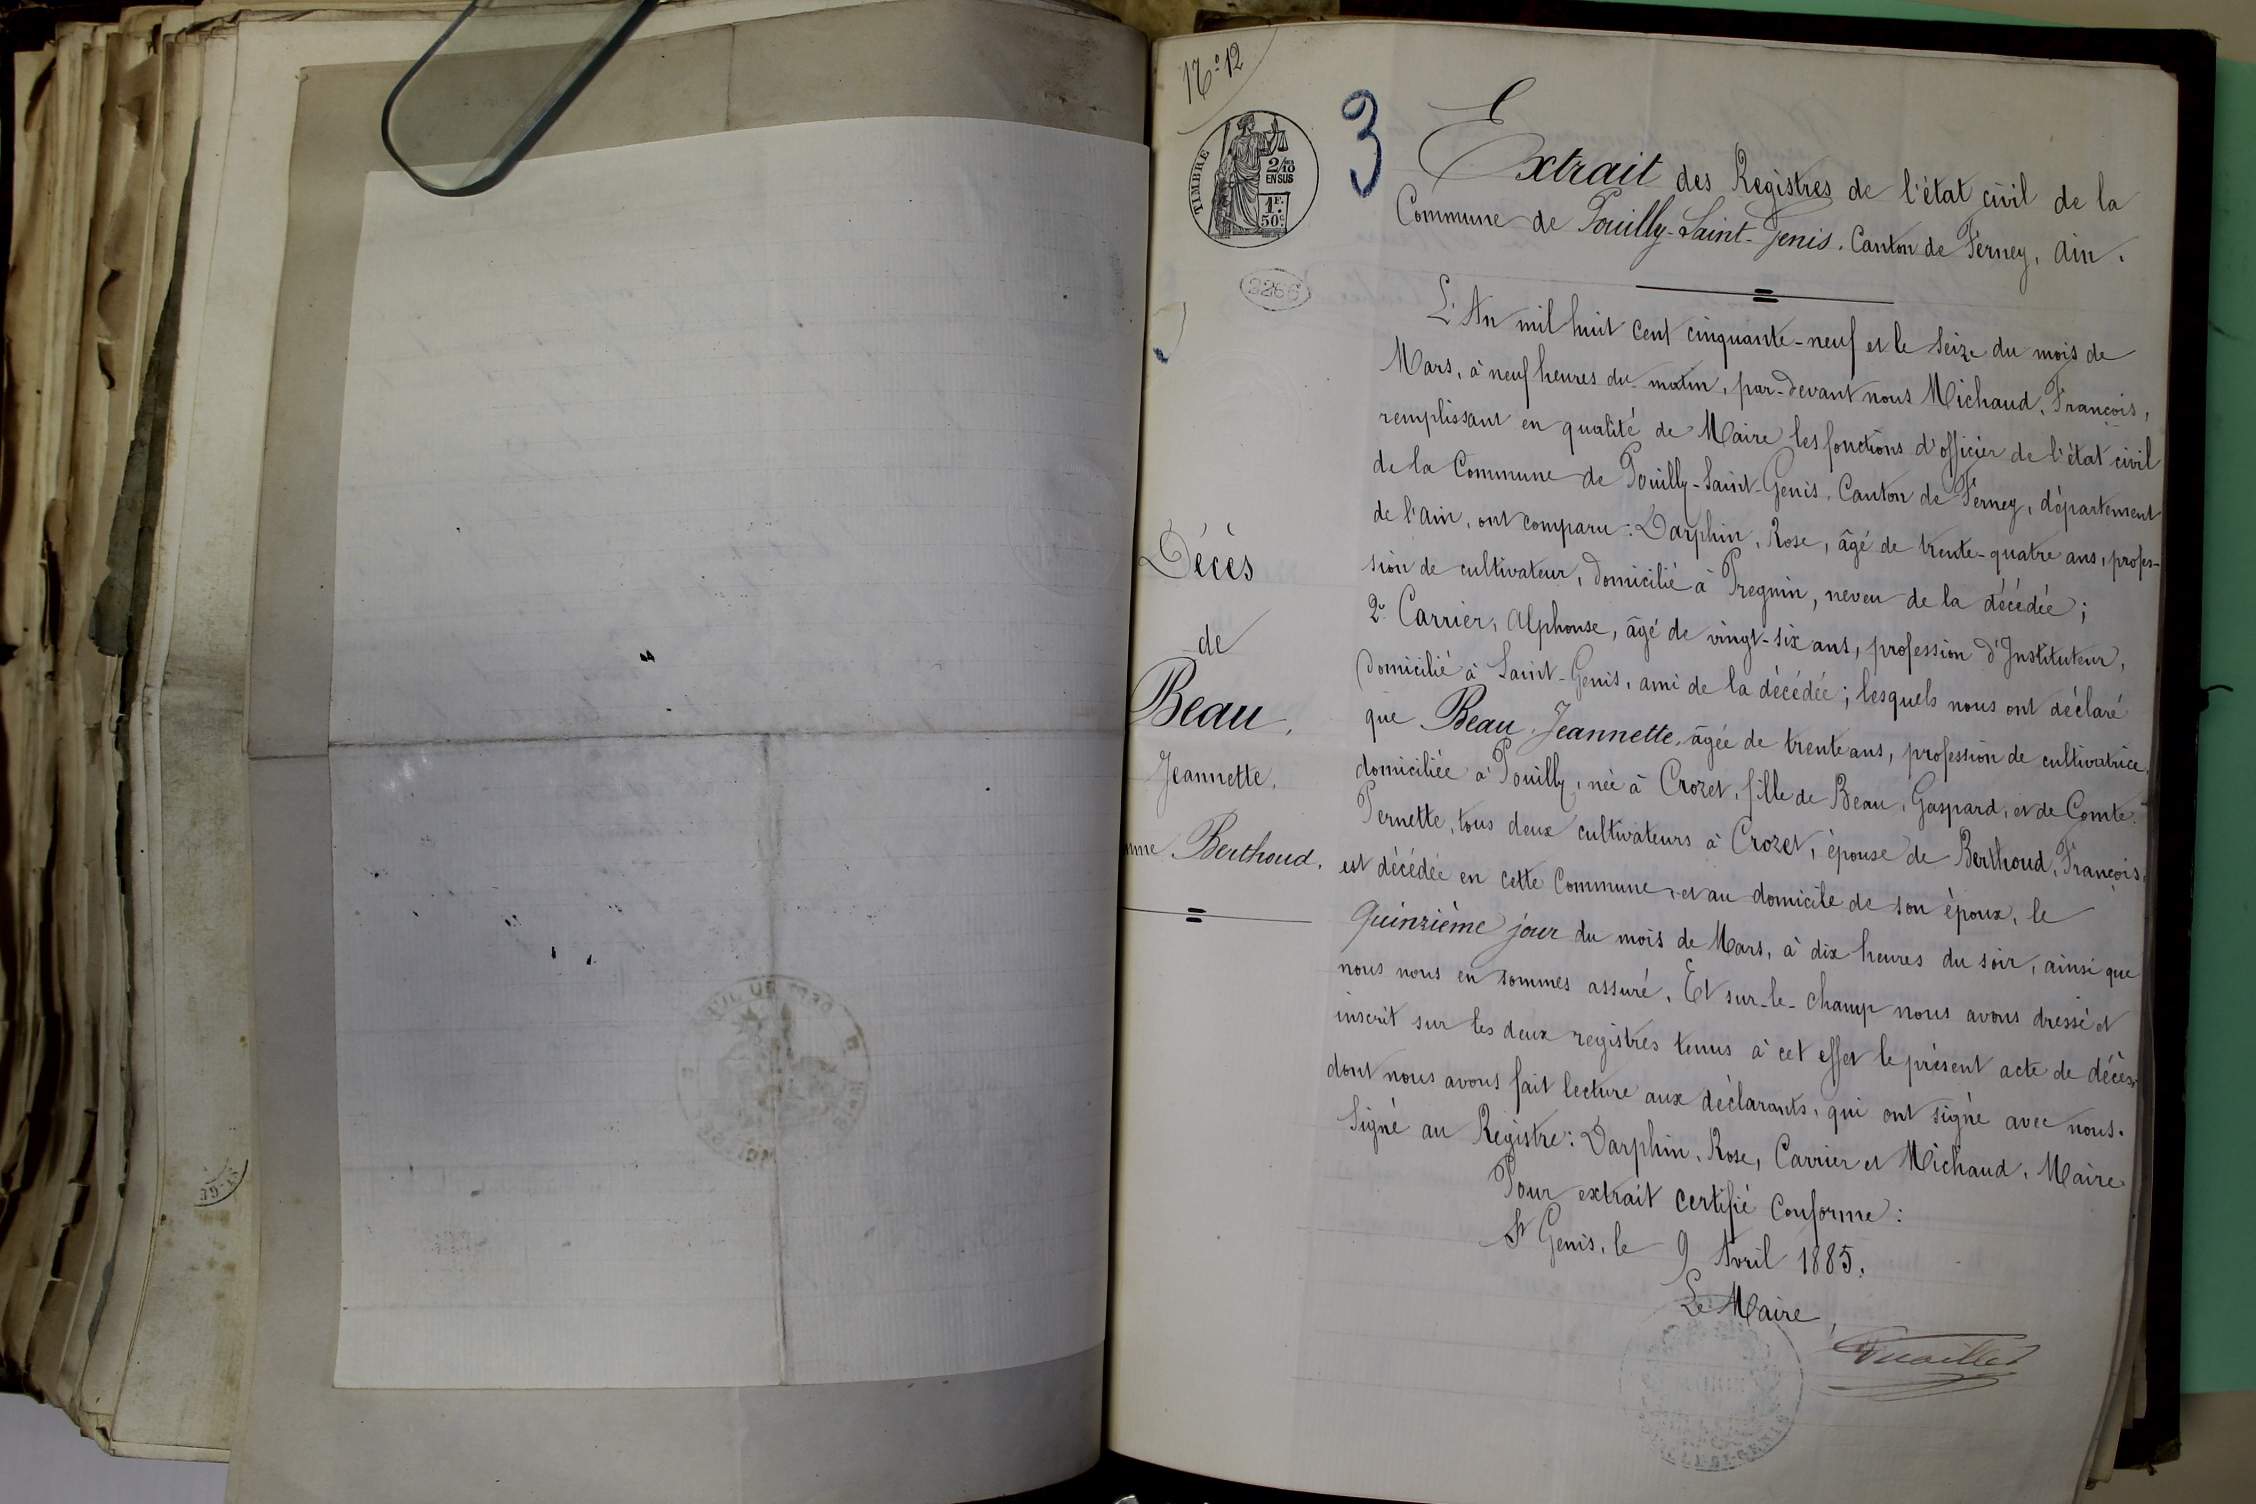 N.º 12
3
TIMBRE
2/10 EN SUS
1F. 50c
2266
Extrait des Registres de l'état civil de la
Commune de Pouilly-Saint-Genis. Canton de Ferney, Ain.
L'An mil huit cent cinquante-neuf et le seize du mois de
Mars, à neuf heures du matin, par-devant nous Michaud, François,
remplissant en qualité de Maire les fonctions d'officier de l'état civil
de la Commune de Pouilly-Saint-Genis, Canton de Ferney, département
de l'Ain, ont comparu: Darphin, Rose, âgé de trente-quatre ans, profes-
sion de cultivateur, domicilié à Pregnin, neveu de la décédée;
2º Carrier, Alphonse, âgé de vingt-six ans, profession d'Instituteur,
domicilié à Saint-Genis, ami de la décédée; lesquels nous ont déclaré
que Beau, Jeannette, âgée de trente ans, profession de cultivatrice,
domiciliée à Pouilly, née à Crozet, fille de Beau, Gaspard, et de Comte
Pernette, tous deux cultivateurs à Crozet, épouse de Berthoud, François,
est décédée en cette Commune, et au domicile de son époux, le
quinzième jour du mois de Mars, à dix heures du soir, ainsi que
nous nous en sommes assuré. Et sur-le-champ nous avons dressé et
inscrit sur les deux registres tenus à cet effet le présent acte de décès,
dont nous avons fait lecture aux déclarants, qui ont signé avec nous.
Signé au Registre: Darphin, Rose, Carrier et Michaud, Maire
Pour extrait certifié conforme:
St Genis, le 9 Avril 1885.
Le Maire,
Décès
de
Beau,
Jeannette,
mme Berthoud.